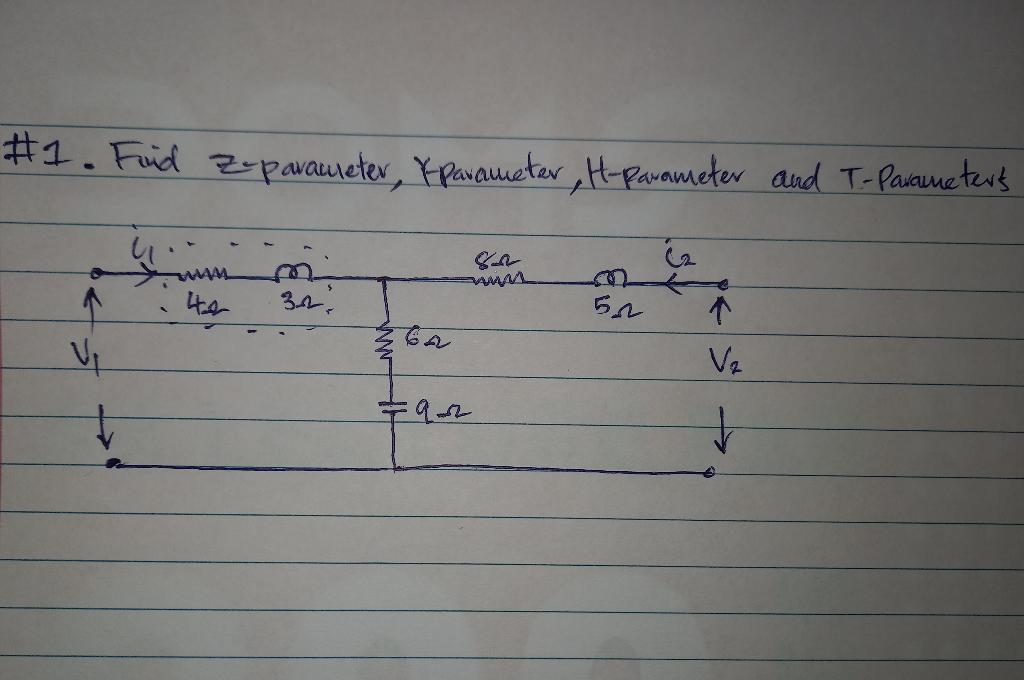 #1. Find Z-parameter, Y-parameter, H-parameter and T-Parameters
i1
8Ω
i2
4Ω
3Ω
5Ω
V1
6Ω
V2
9Ω